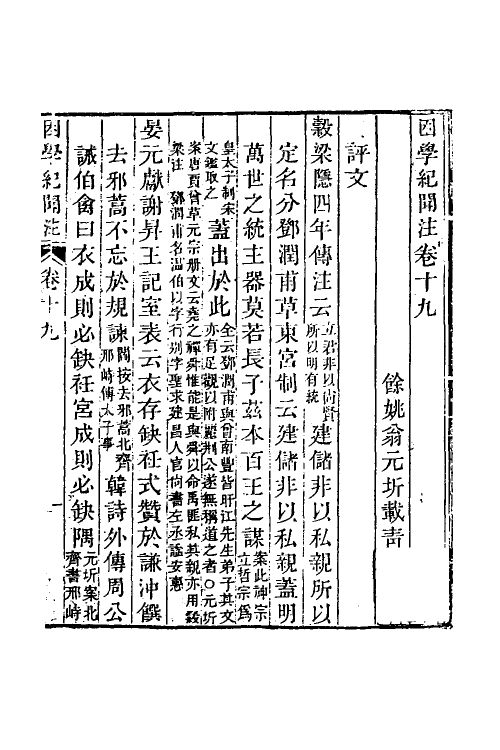 困學紀聞注卷十九
餘姚翁元圻載青
評文
穀梁隱四年傳注云立君非以尚賢所以明有統建儲非以私親所以
定名分鄧潤甫草東宮制云建儲非以私親蓋明
萬世之統主器莫若長子茲本百王之謀案此神宗立哲宗為
皇太子制宋文鑑取之蓋出於此全云鄧潤甫與曾南豐皆盱江先生弟子其文亦有足觀以附麗荊公遂無稱道之者○元圻
案唐賈曾草元宗册文云堯之禪舜惟能是與舜以命禹匪私其親亦用穀梁注 鄧潤甫名溫伯以字行别字聖求建昌人官尚書左丞諡安惠
晏元獻謝昇王記室表云衣存缺衽式贊於謙沖饌
去邪蒿不忘於規諫閻按去邪蒿北齊邢峙傳太子事韓詩外傳周公
誡伯禽曰衣成則必缺衽宮成則必缺隅元圻案北齊書邢峙
困學紀聞注
卷十九
一